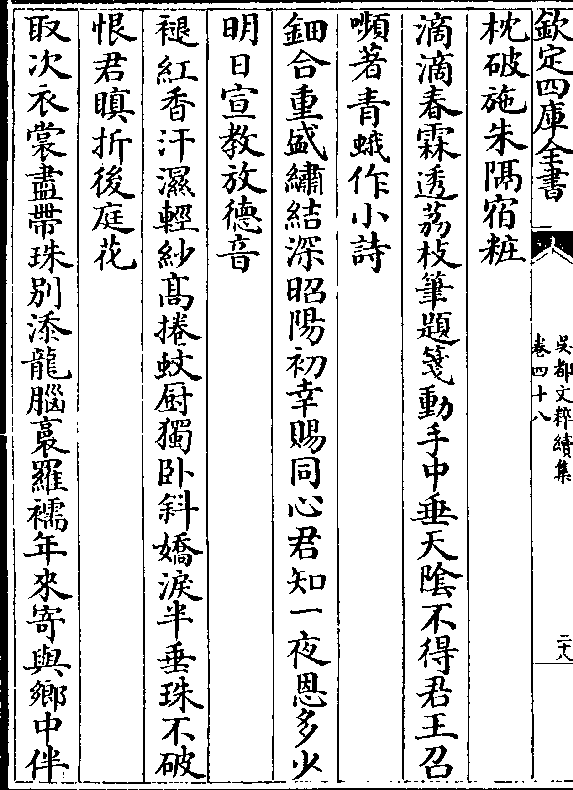 欽定四庫全書
吳都文粹續集
卷四十八
二十八
枕破施朱隔宿粧
滴滴春霖透荔枝筆題箋動手中垂天隂不得君王召
嚬著青蛾作小詩
鈿合重盛繡結深昭陽初幸賜同心君知一夜恩多少
明日宣教放德音
褪紅香汗濕輕紗髙捲蚊㕑獨卧斜嬌淚半垂珠不破
恨君瞋折後庭花
取次衣裳盡帶珠别添龍腦裛羅襦年來寄與鄉中伴